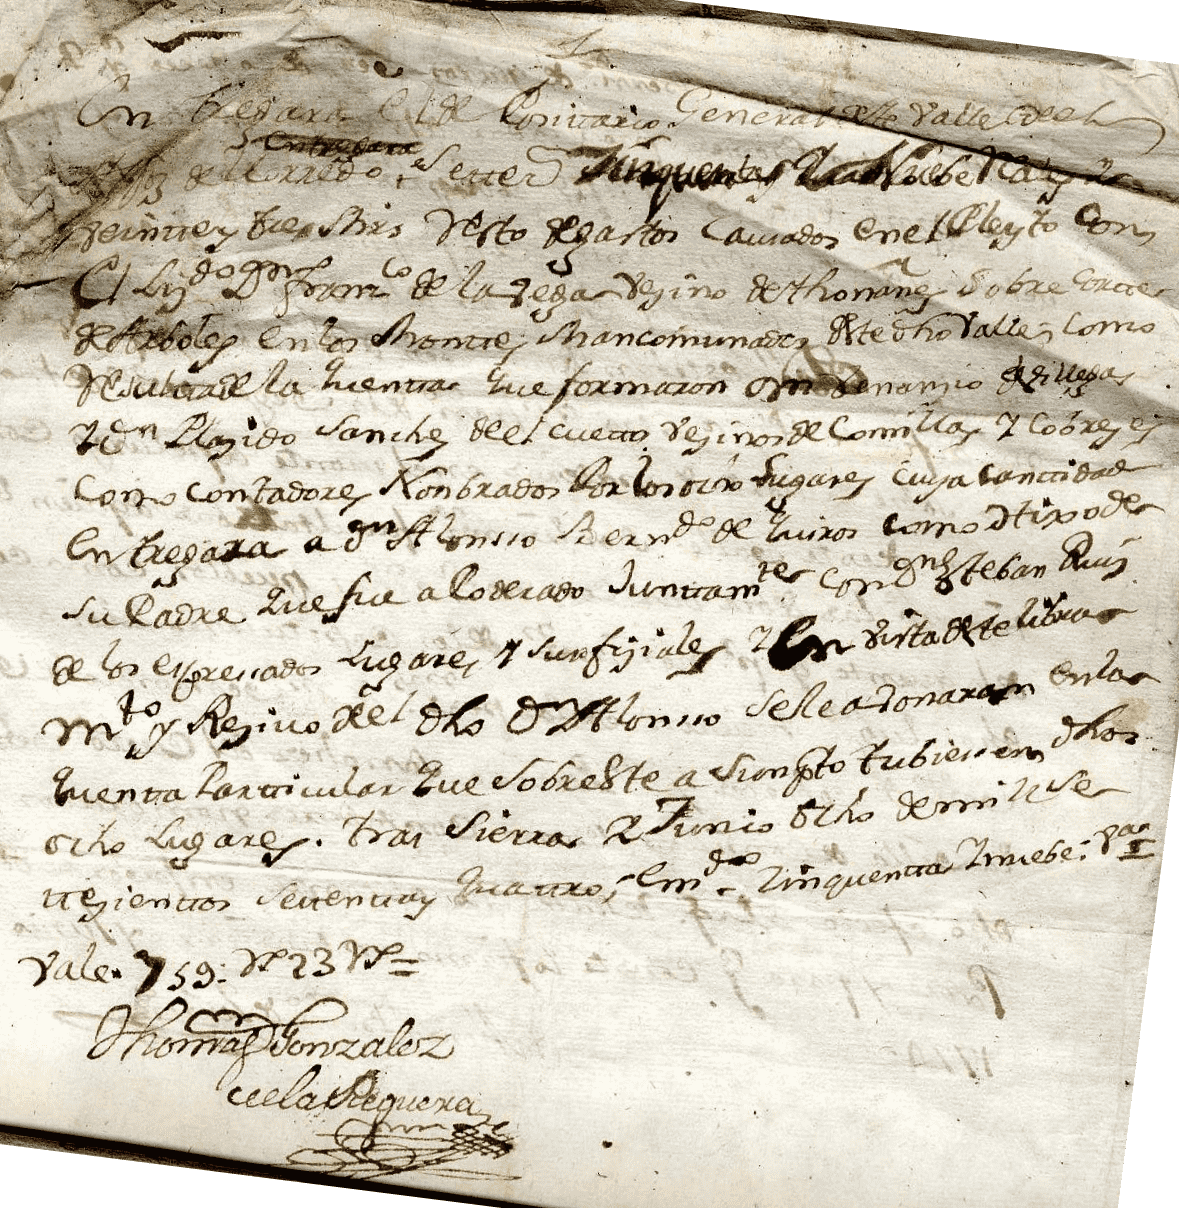 Entregara el de Positario General deste Valle de el
Entregara
Alfoz de lloredo Settez.s Zinquenta y Nuebe Reales y
veintte y tres Mrs Resto de gastos Causados en el Pleyto Con
El Liz.do D.n Franz.co de la Vega Vezino de thoñanes Sobre Corttes
de Arboles en los Monttes Mancomunados deste dho Valle, Como
Resulta de la quentta que formaron D.n Venanzio de Villegas
y D.n Plazido Sanchez de el Cuetto Vezinos de Comillas y Cobrezes
Como Contadores Nonbrados Por los ocho Lugares Cuya Canttidad
Entregara a D.n Alonsso Bern.do de quiros Como Hixo de
su Padre que fue aPoderado Junttam.te Con D.n Esteban Ruiz
de los espresados Lugares y sus fijiales y En Vista deste libra
m.to y Reziuo del dho D.n Alonsso Sele aVonaran en la
quentta Partticular que Sobre Este aSumpto tubiessen dhos
ocho Lugares. tras Sierra y Junio Ocho de mill Se
ttezienttos Settentta y quattro, Em.do Zinquentta y nuebe:
Vale. 759: Rs 23 Ms =
Thomas Gonzalez
de la Reguera